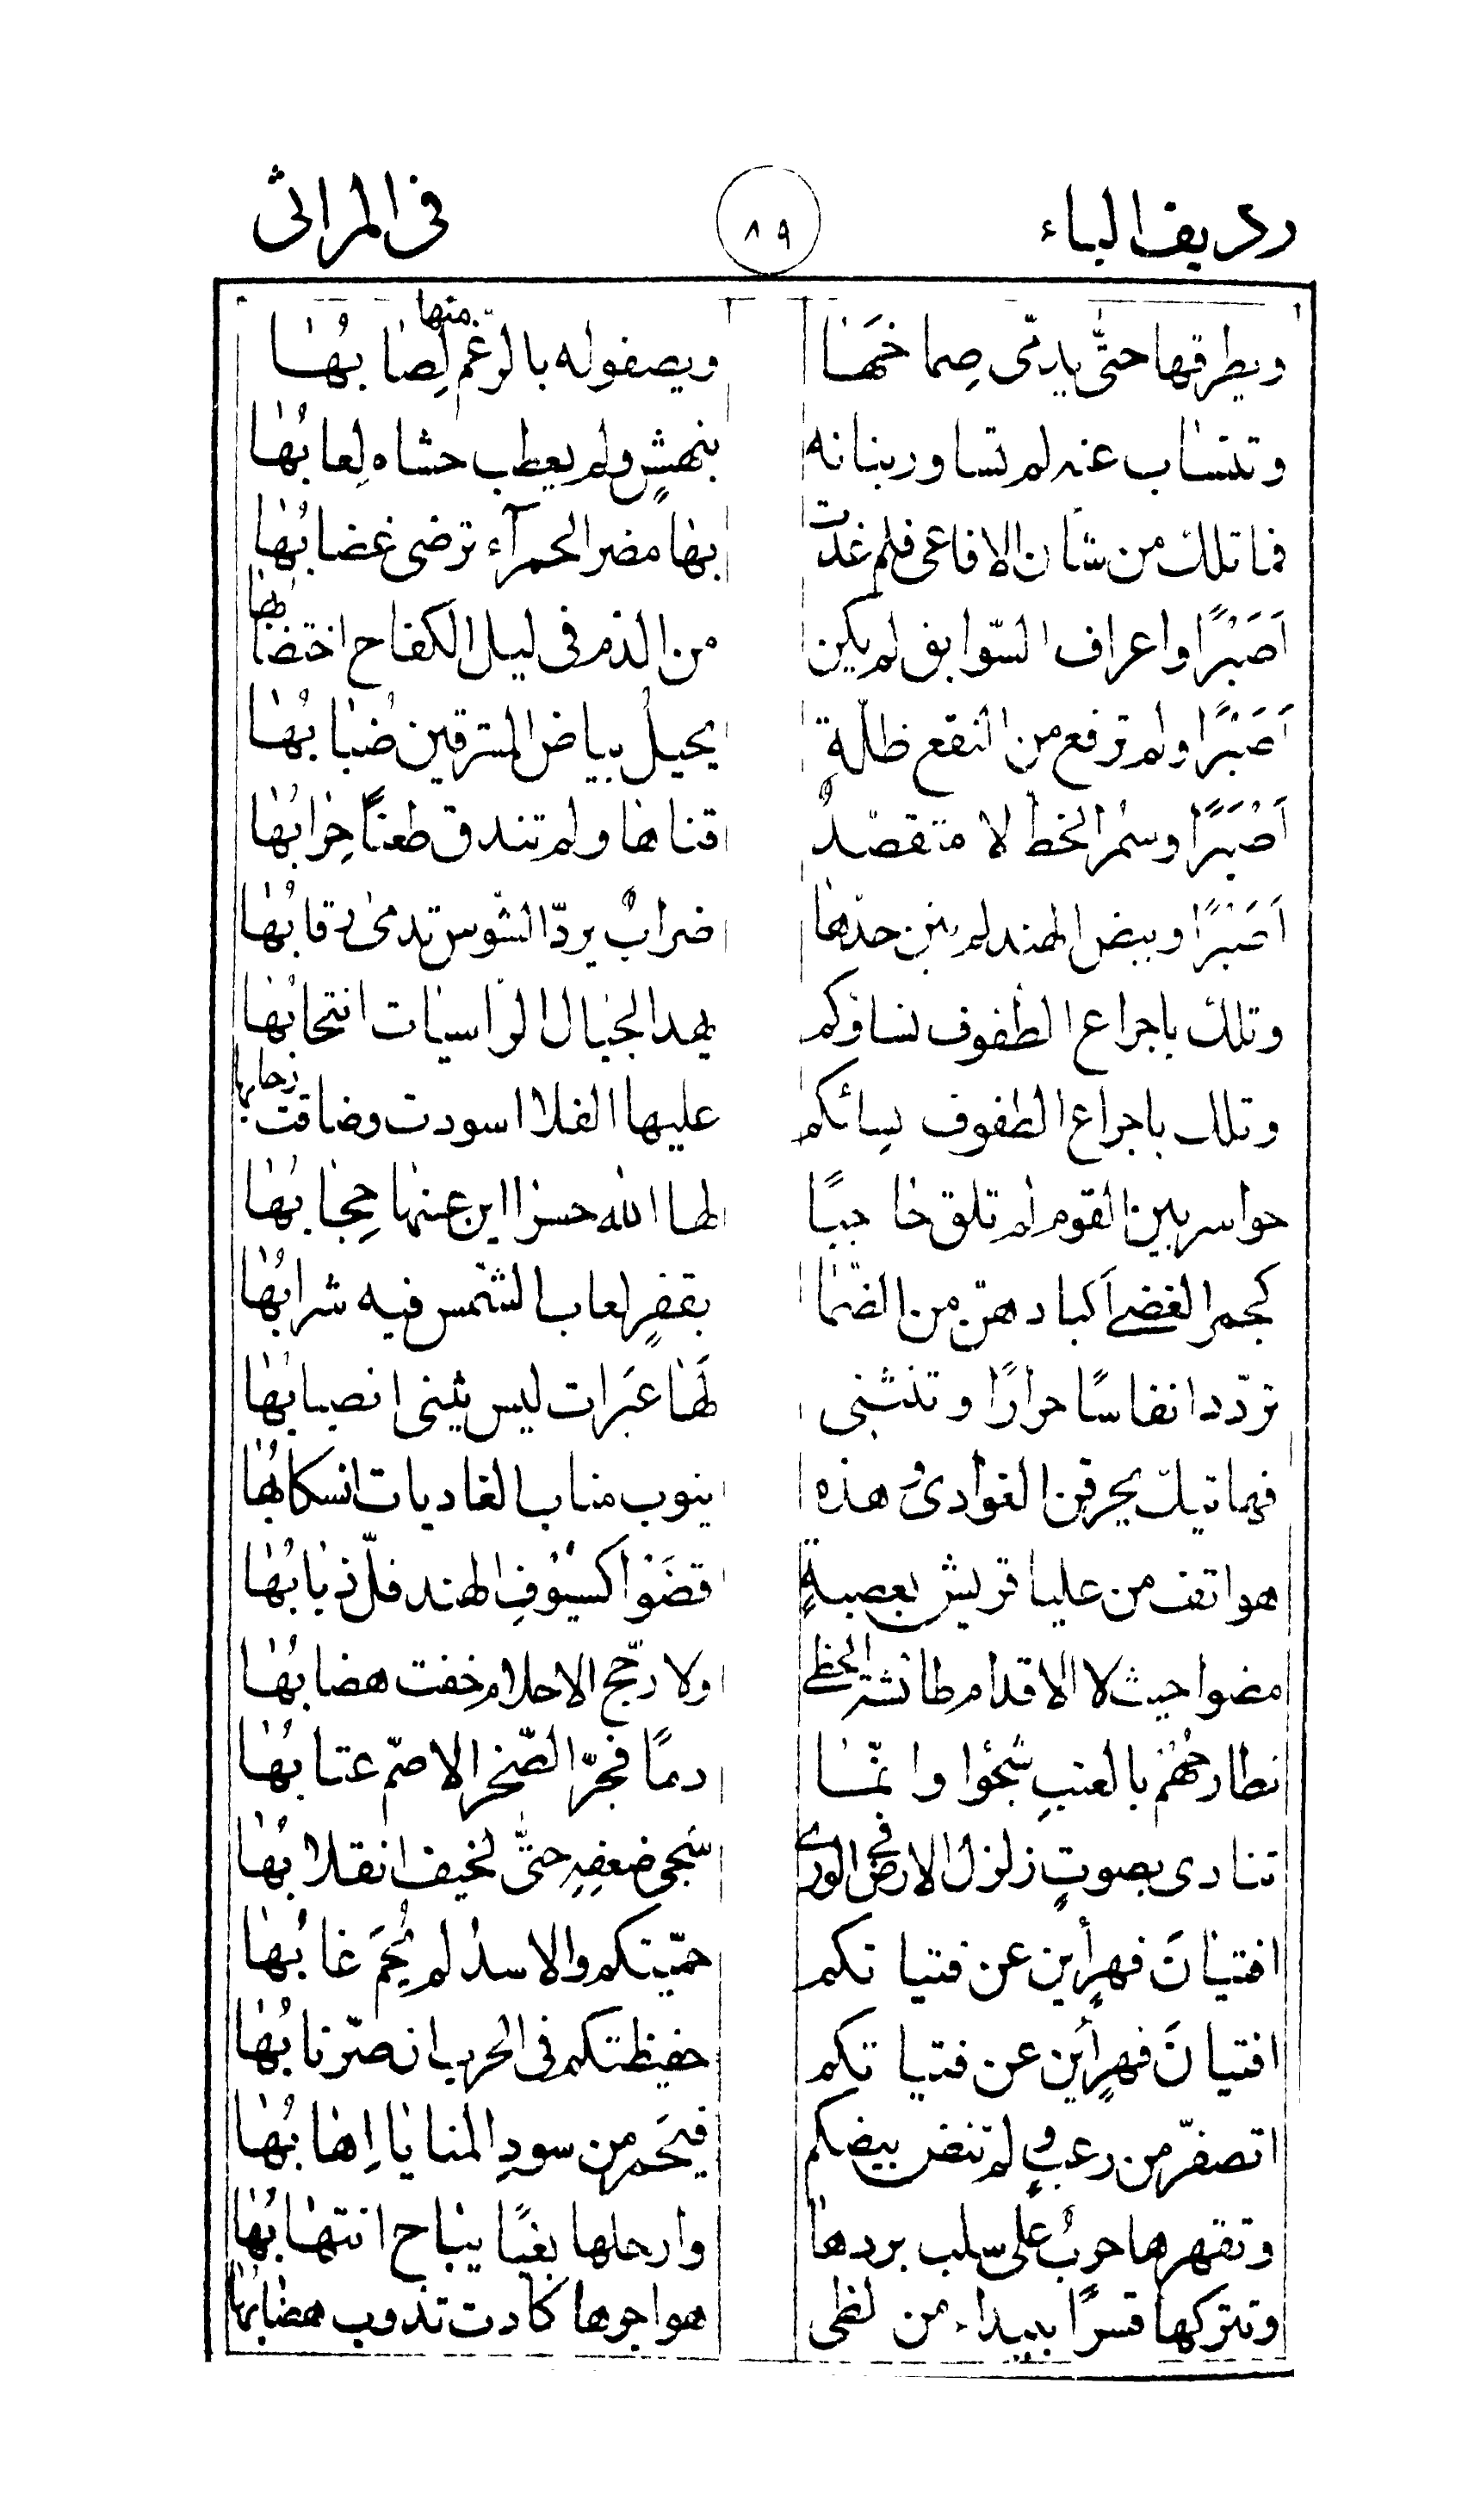 رديف الباء ٨٩ فى المراثى
ويطرقها حتّى يدمّى صِماخَها ويصفو له بالرّغم منها لِصابُها
وتنساب عنه لم تساور بنانه بنهشٍ ولم يعطب حشاه لِعابُها
فما تلك من شأن الافاعى فلم غدت بها مضر الحمرآء ترضى غضابُها
اَصَبْرًا واعراف السّوابق لم يكن من الدم فى ليل الكفاح اختضابها
اَصَبْرًا ولم ترفع من النقع ظلّةٍ يحيل بياض المشرقين ضُبابُها
اَصَبْرًا وسُمْر الخط لا متقصّدٌ قناها ولم تندق طعنًا حِرابُها
اَصَبْرًا وبيض الهند لم يثن حدّها ضرابٌ يردّ الشّوس تدمى رقابُها
وتلك باجراع الطّفوف نساؤكم يهد الجبال الرّاسيات انتحابُها
وتلك باجراع الطفوف نسائكم عليها الفلا اسودت وضاقت رحابها
حواسر بين القوم لم تلق حاجبًا لها الله حسرا اين عنها حِجابُها
كجمر الغضى اكبادهنّ من الضّما بقفرٍ لعاب الشّمس فيه شرابُها
تردّد انفاسًا حرارًا وتنثنى لَها عبَرات ليس يثنى انصبابُها
فهاتيك يحرقن الغوادى وهذه ينوب مناب الغاديات انسكابُها
هواتف من عليا قريش بعصبةٍ قضَوْا كسيُوفِ الهند فلّ ذبابُها
مضوا حيث لا الاقدام طائشة الخطى ولا رجّح الاحلام خفت هضابُها
تطارحُهُم بالعتبِ شجْوا وانّما دمًا فجرّ الصّخر الاصمّ عتابُها
تنادى بصوتٍ زلزل الارض فى الورى شجى ضعفِهِ حتّى لخيف انقلابُها
افتيانَ فهرٍ أين عن فتياتكم حميّتكم والاسدُ لم يُحمَ غابُها
افتيانَ فهرٍ أين عن فتياتكم حفيظتكم فى الحرب ان صرّ نابُها
اتصفرّ من رعبٍ ولم تنض بيضكم فيَحمر من سودِ المنايا اِهابُها
وتقهرها حربٌ على سلب بردها وارحلها بغيًا يباح انتهابُها
وتتركها قسرًا ببيداء من لظى هواجرها كادت تذوب هضابُها